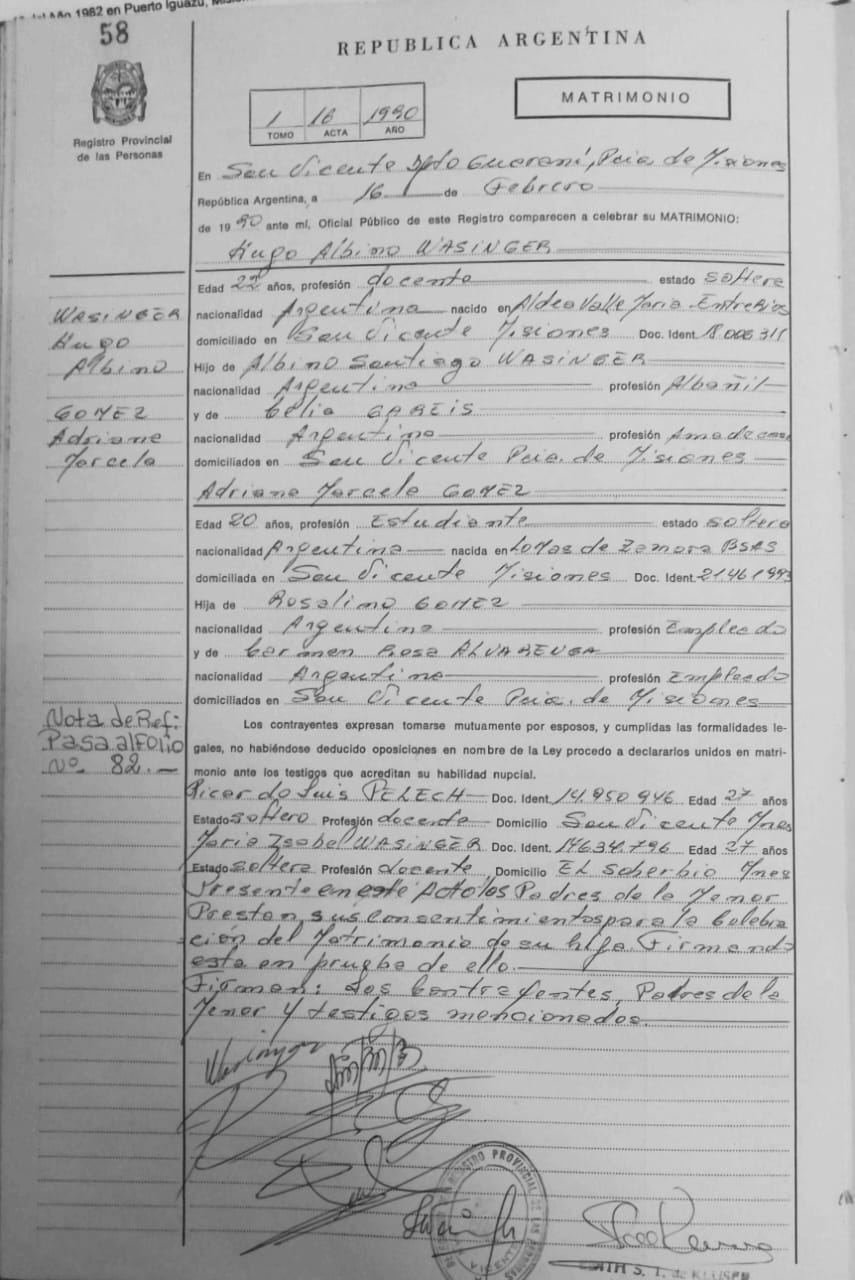 del Año 1982 en Puerto Iguazú,
58
REPUBLICA ARGENTINA
MATRIMONIO
1 16 1990
TOMO ACTA AÑO
Registro Provincial
de las Personas
En San Vicente Dpto Guaraní, Pcia de Misiones
República Argentina, a 16 de Febrero
de 1990 ante mí, Oficial Público de este Registro comparecen a celebrar su MATRIMONIO:
Hugo Albino WASINGER
Edad 22 años, profesión docente estado soltero
nacionalidad Argentina nacido en Aldea Valle Maria Entre Rios
domiciliado en San Vicente Misiones Doc. Ident. 18.006311
Hijo de Albino Santiago WASINGER
nacionalidad Argentina profesión Albañil
y de Celia GAREIS
nacionalidad Argentina profesión Ama de casa
domiciliados en San Vicente Pcia. de Misiones
WASINGER
Hugo
Albino
GOMEZ
Adriana
Marcela
Adriana Marcela GOMEZ
Edad 20 años, profesión Estudiante estado soltera
nacionalidad Argentina nacida en Lomas de Zamora BSAS
domiciliada en San Vicente Misiones Doc. Ident. 21.461993
Hija de Rosalino GOMEZ
nacionalidad Argentina profesión Empleado
y de Carmen Rosa ALVARENGA
nacionalidad Argentina profesión Empleado
domiciliados en San Vicente Pcia. de Misiones
Nota de Ref:
Pasa al Folio
Nº 82.-
Los contrayentes expresan tomarse mutuamente por esposos, y cumplidas las formalidades le-
gales, no habiéndose deducido oposiciones en nombre de la Ley procedo a declararlos unidos en matri-
monio ante los testigos que acreditan su habilidad nupcial.
Ricardo Luis PELECH Doc. Ident. 14.950.946 Edad 27 años
Estado soltero Profesión docente Domicilio San Vicente Mnes
Maria Isabel WASINGER Doc. Ident. 17634.796 Edad 27 años
Estado soltera Profesión docente, Domicilio EL Soberbio Mnes
Presente en este Acto los Padres de la Menor
Prestan sus consentimientos para la Celebra
ción del Matrimonio de su hija Firmando
esta en prueba de ello.
Firman: Los Contrayentes, Padres de la
Menor y testigos mencionados.
Wasinger
REGISTRO PROVINCIAL DE LAS PERSONAS
VICENTE
EDITH S. T. de KLUSER